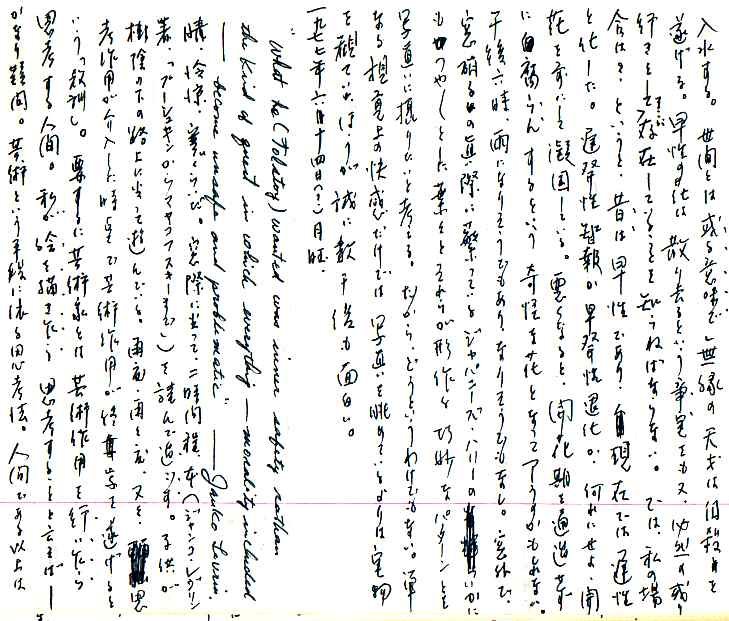 入水する。世間とは或る意味で無縁の天才は自殺を
遂げる。早性の花は散り去るという事実をも又、必然の成り
行きとして存在していることを知らねばならない。では、私の場
合は?、というと、昔は早性であり、現在では遅性
と化した。遅発性智報か早発性退化か、何れにせよ、開
花を前にして凝固している。悪くなると、開花期を通過せず
に腐らんするという奇怪な花となってしまうかもしれない。
午後六時、雨になりそうでもありなりそうでもなし。窓外で、
窓硝子の真際に繁っているジャパニーズ・ハリーのいかに
もつやつやとした葉とそれが形作る巧妙なパターンとを
写真に撮りたいと考える。だからどうというわけでもない。単
なる視覚上の快感だけでは写真を眺めているよりは実物
を視ていたほうが誠に数千倍も面白い。
一九七七年六月十四日(?)月曜
"What he (Tolstoy) wanted was inner safety rather
the kind of quest in which everything — morality included
— become unsafe and problematic." — Janko Lavrin.
晴、冷涼、窓際に坐って、二時間程、本(ジャンコ・レヴリン
著、「プーシュキンからマヤコフスキーまで」)を読んで過ごす。子供が
樹陰の下の路上に坐って遊んでいる。再考、再々考、又々、思
考作用が介入した時点で芸術作用が終尊寺を遂げると
いう「教訓」。要するに芸術家とは芸術作用を行いながら
思考する人間。私が絵を描きながら思考することと言えば—
かなり疑問。芸術という手段に依る思考法。人間である以上は